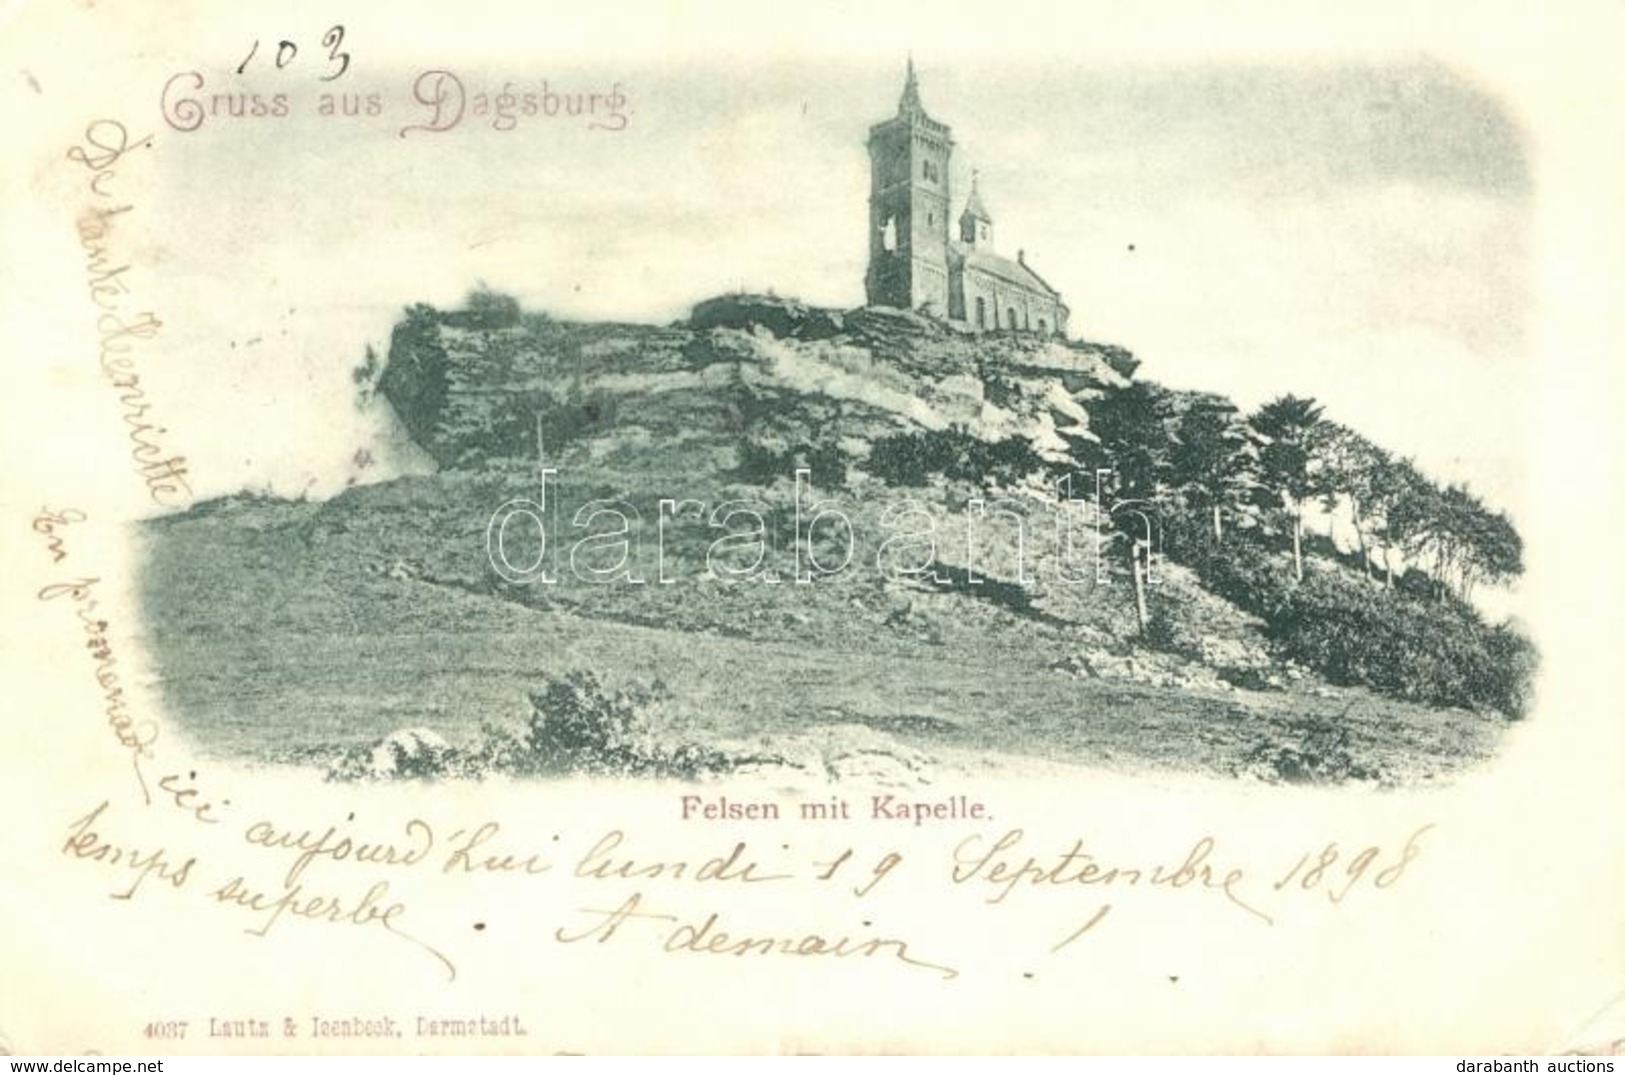 103
Gruss aus Dagsburg.
De tante Henriette
En promenade ici
aujourd'hui lundi 19 Septembre 1898
temps superbe. A demain!
darabanth
Felsen mit Kapelle.
4037 Lautz & Isenbeck, Darmstadt.
© www.darabanth.com
darabanth auctions